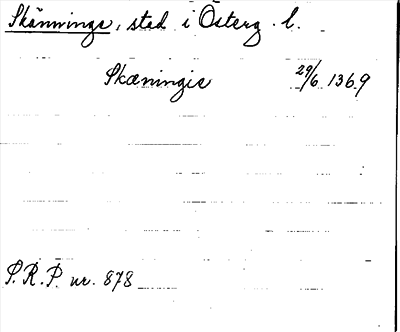 Skänninge, stad i Österg. l.
Skæningis 29/6 1369
S.R.P. nr. 878